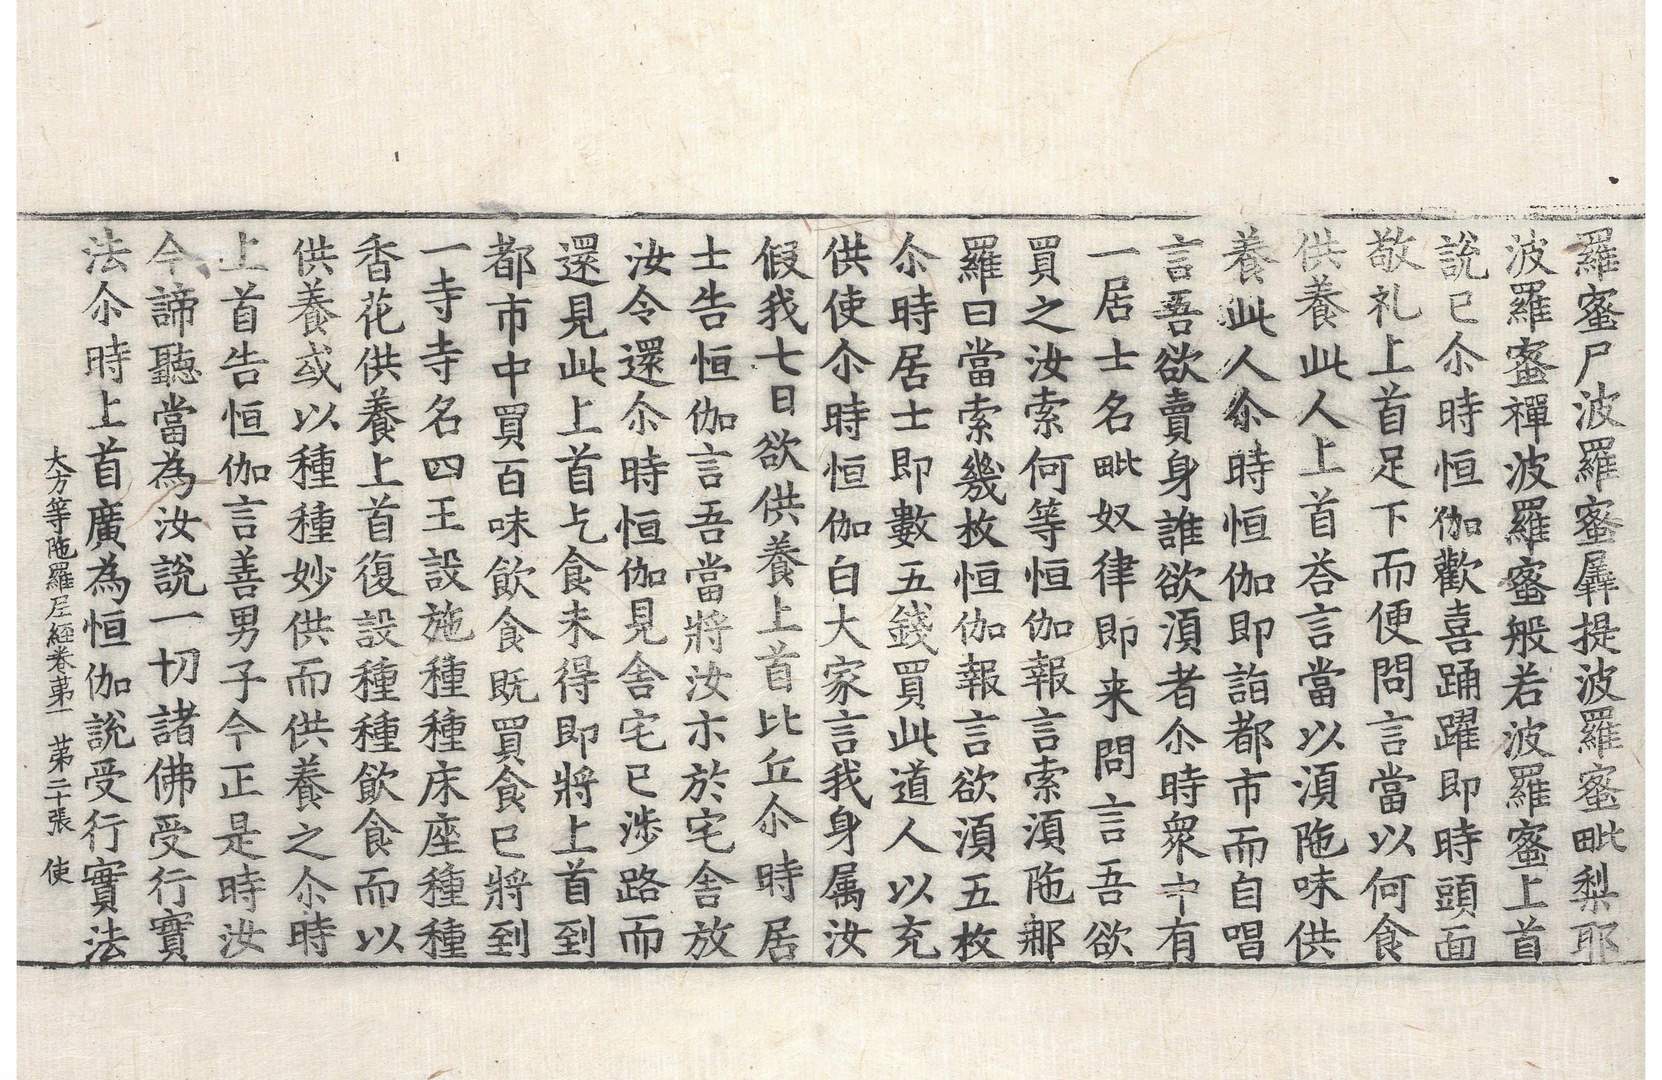 羅蜜尸波羅蜜羼提波羅蜜毗梨耶
波羅蜜禪波羅蜜般若波羅蜜上首
說已尒時恒伽歡喜踊躍即時頭面
敬礼上首足下而便問言當以何食
供養此人上首荅言當以湏陁味供
養此人尒時恒伽即詣都市而自唱
言吾欲賣身誰欲湏者尒時衆中有
一居士名毗奴律即来問言吾欲
買之汝索何等恒伽報言索湏陁那
羅曰當索幾枚恒伽報言欲湏五枚
尒時居士即數五錢買此道人以充
供使尒時恒伽白大家言我身属汝
假我七日欲供養上首比丘尒時居
士告恒伽言吾當將汝示於宅舎放
汝令還尒時恒伽見舎宅已涉路而
還見此上首乞食未得即將上首到
都市中買百味飲食既買食已將到
一寺寺名四王設施種種床座種種
香花供養上首復設種種飲食而以
供養或以種種妙供而供養之尒時
上首告恒伽言善男子今正是時汝
今諦聽當為汝說一切諸佛受行實
法尒時上首廣為恒伽說受行實法
大方等陁羅尼經卷苐一 苐二十張 使